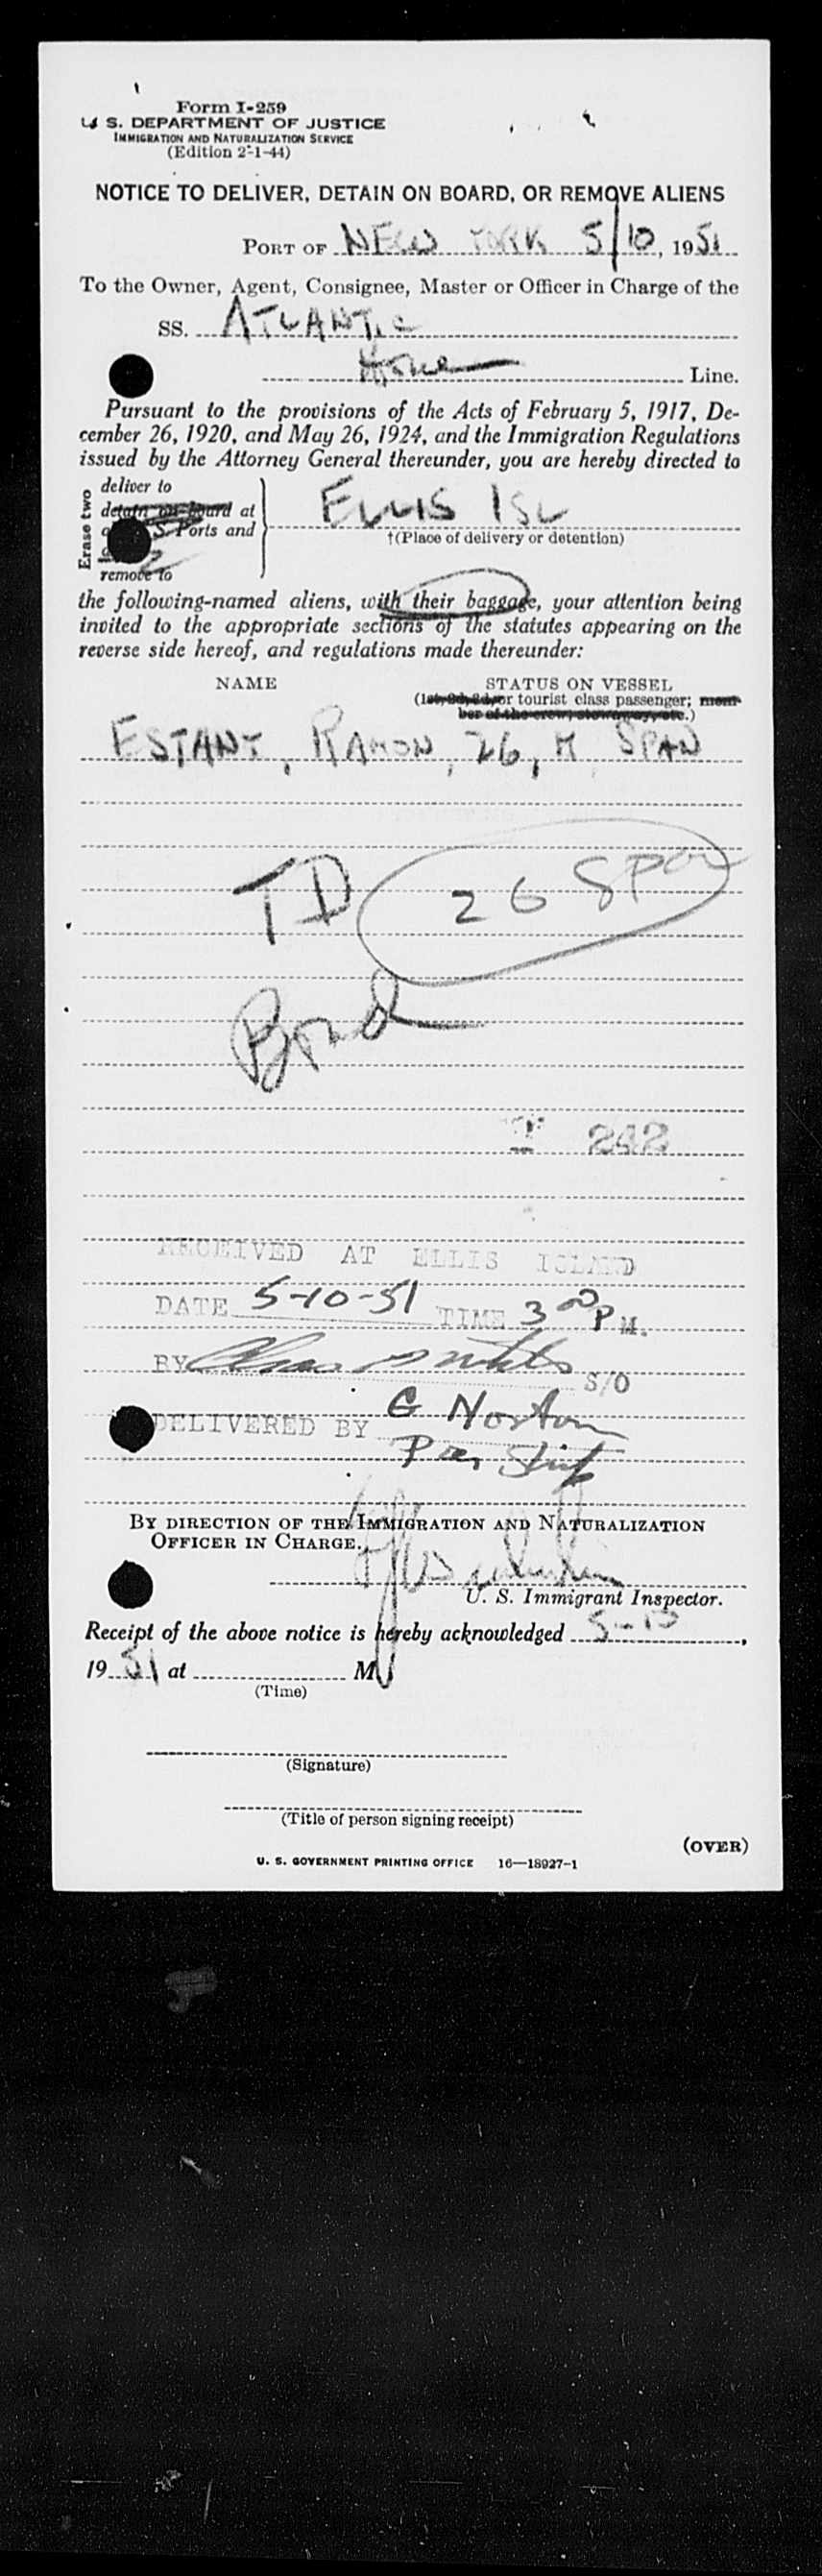 Form I-259
U. S. DEPARTMENT OF JUSTICE
IMMIGRATION AND NATURALIZATION SERVICE
(Edition 2-1-44)
NOTICE TO DELIVER, DETAIN ON BOARD, OR REMOVE ALIENS
PORT OF NEW YORK 5/10, 1951
To the Owner, Agent, Consignee, Master or Officer in Charge of the
SS. ATLANTIC
Home Line.
Pursuant to the provisions of the Acts of February 5, 1917, De-
cember 26, 1920, and May 26, 1924, and the Immigration Regulations
issued by the Attorney General thereunder, you are hereby directed to
Erase two
deliver to
detain on board at
S. Ports and
remove to
ELLIS ISL
†(Place of delivery or detention)
the following-named aliens, with their baggage, your attention being
invited to the appropriate sections of the statutes appearing on the
reverse side hereof, and regulations made thereunder:
NAME STATUS ON VESSEL
(1st, 2d, 3d, or tourist class passenger; mem-
ber of the crew; stowaway, etc.)
ESTANY, RAMON, 26, M, SPAN
TD 26 Span
Bond
242
RECEIVED AT ELLIS ISLAND
DATE 5-10-51 TIME 3 00 P M.
BY S/O
DELIVERED BY G Norton
BY DIRECTION OF THE IMMIGRATION AND NATURALIZATION
OFFICER IN CHARGE.
U. S. Immigrant Inspector.
Receipt of the above notice is hereby acknowledged 5-10,
1951 at M.
(Time)
(Signature)
(Title of person signing receipt)
(OVER)
U. S. GOVERNMENT PRINTING OFFICE 16—18927-1